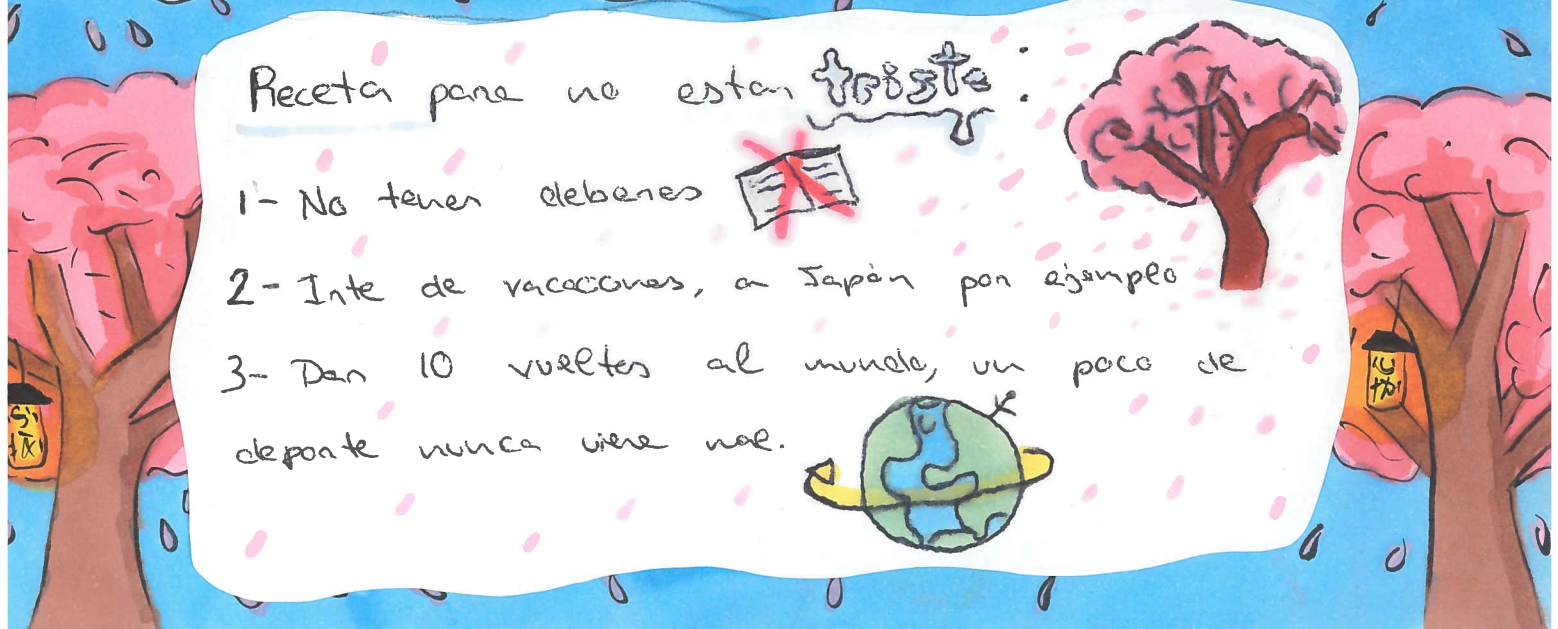 Receta para no estar triste:
1- No tener deberes
2- Irte de vacaciones, a Japón por ejemplo
3- Dar 10 vueltas al mundo, un poco de
deporte nunca viene mal.